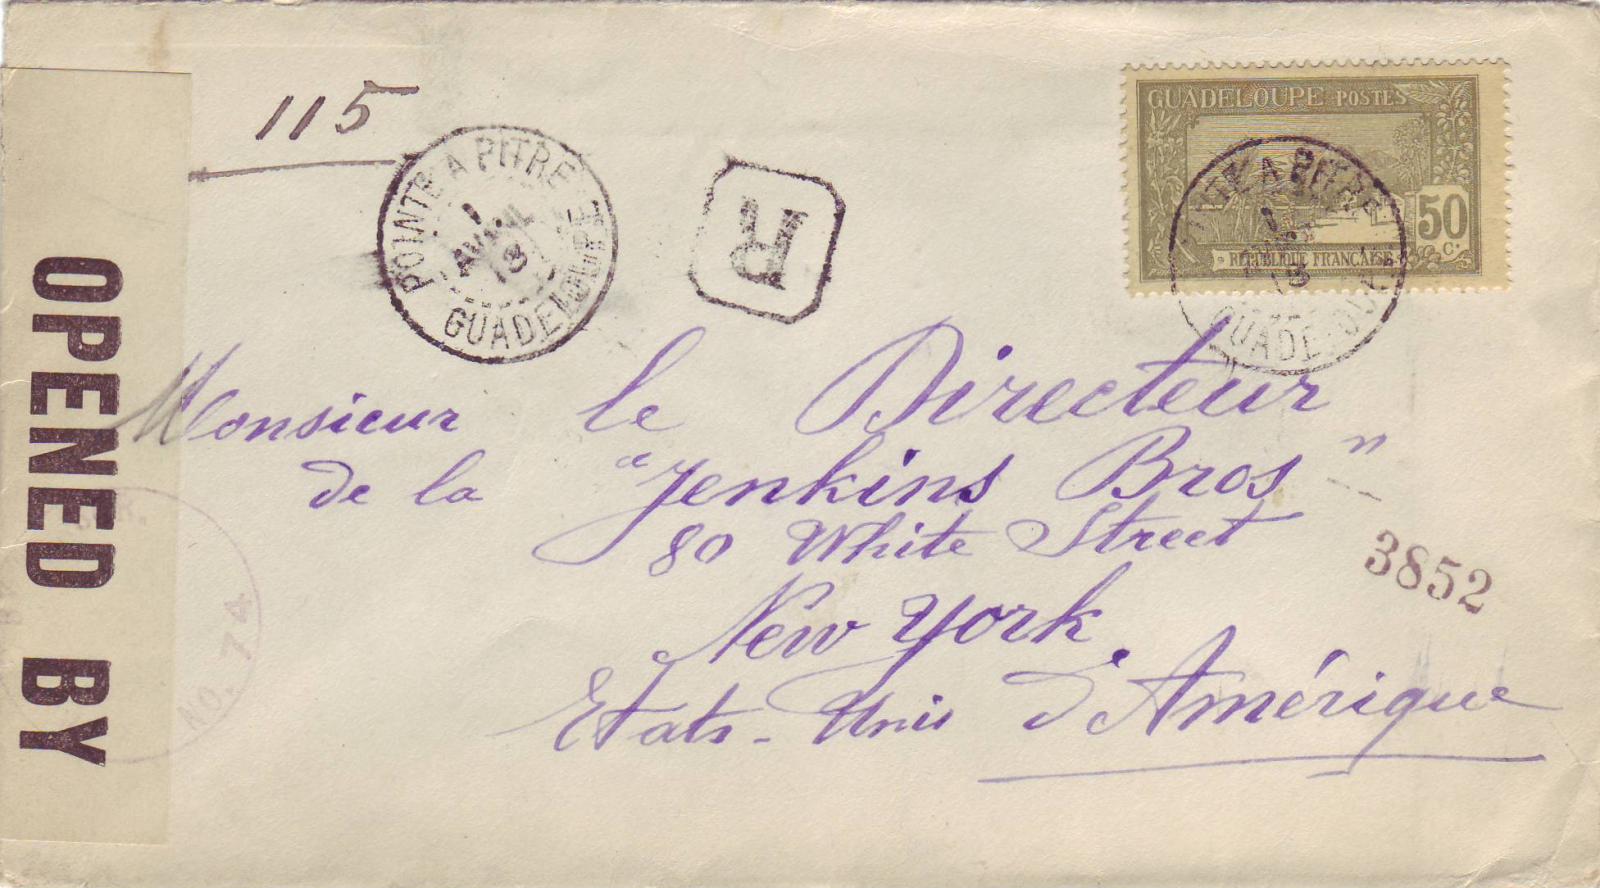 115
POINTE A PITRE
1
AVRIL
18
GUADELOUPE
R
GUADELOUPE POSTES
50
C.
REPUBLIQUE FRANÇAISE
POINTE A PITRE
1
18
GUADELOUPE
OPENED BY
NO. 74
Monsieur le Directeur
de la "Jenkins Bros"
80 White Street
New York.
Etats-Unis d'Amérique
3852